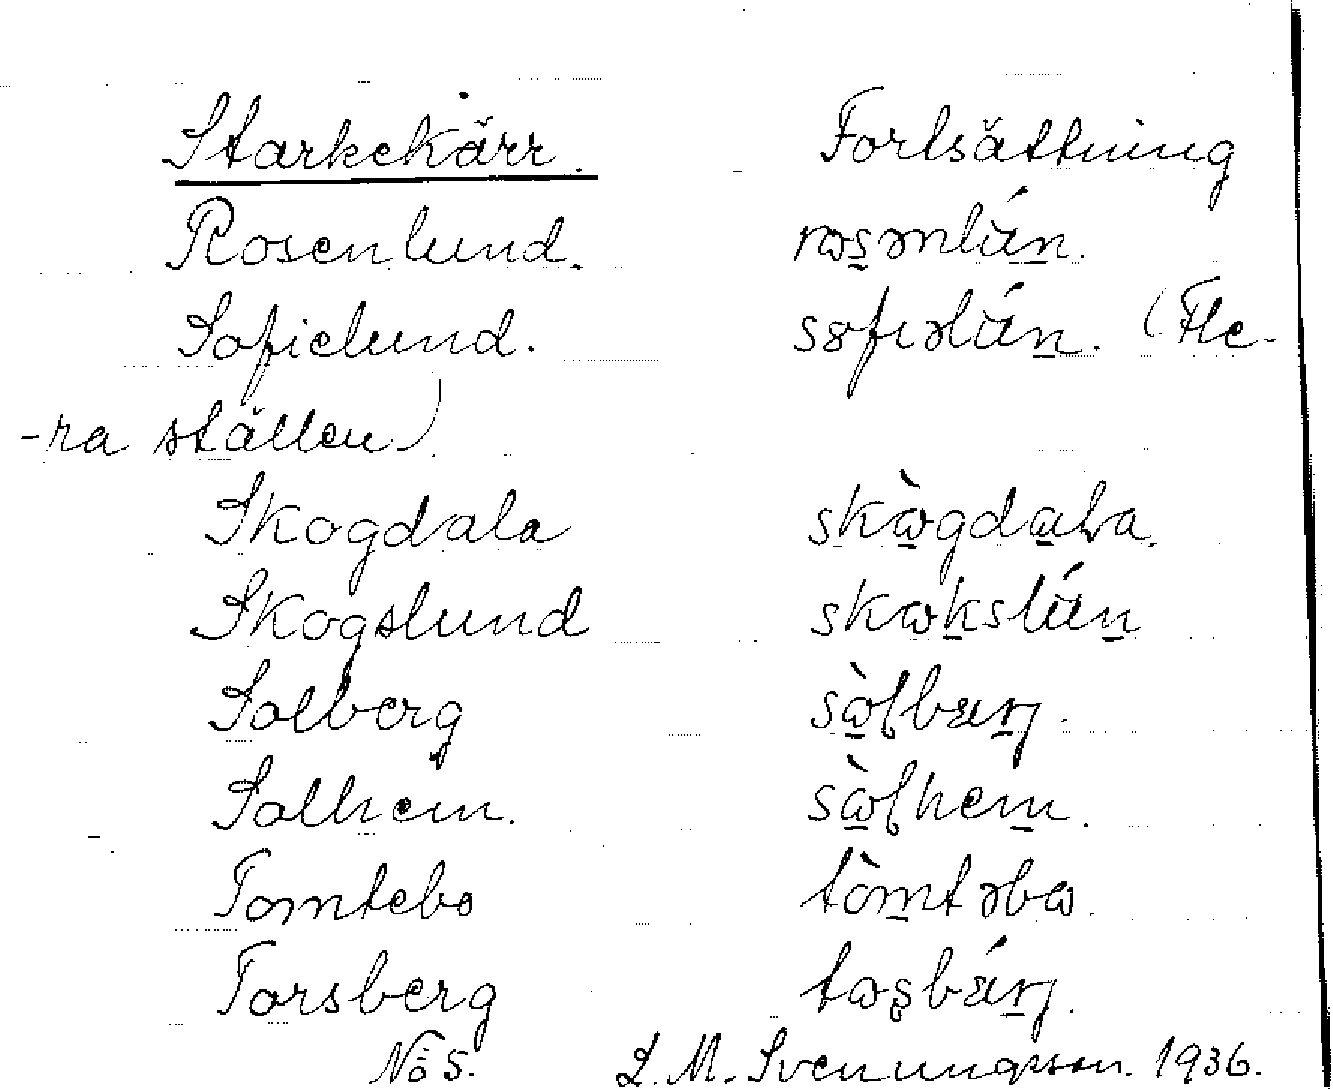 Starkekärr. Fortsättning
Rosenlund. rɷsənlún.
Sofielund. sɤfıəlún. (Fle-
-ra ställen)
Skogdala skɷ̀gdaɫa.
Skogslund skɷkslún
Solberg sɷ̀ɫbærj.
Solhem. sɷ̀ɫhem.
Tomtebo tòmtəbɷ.
Torsberg tɷʂbǽrj.
No 5. L. M. Svenungsson. 1936.